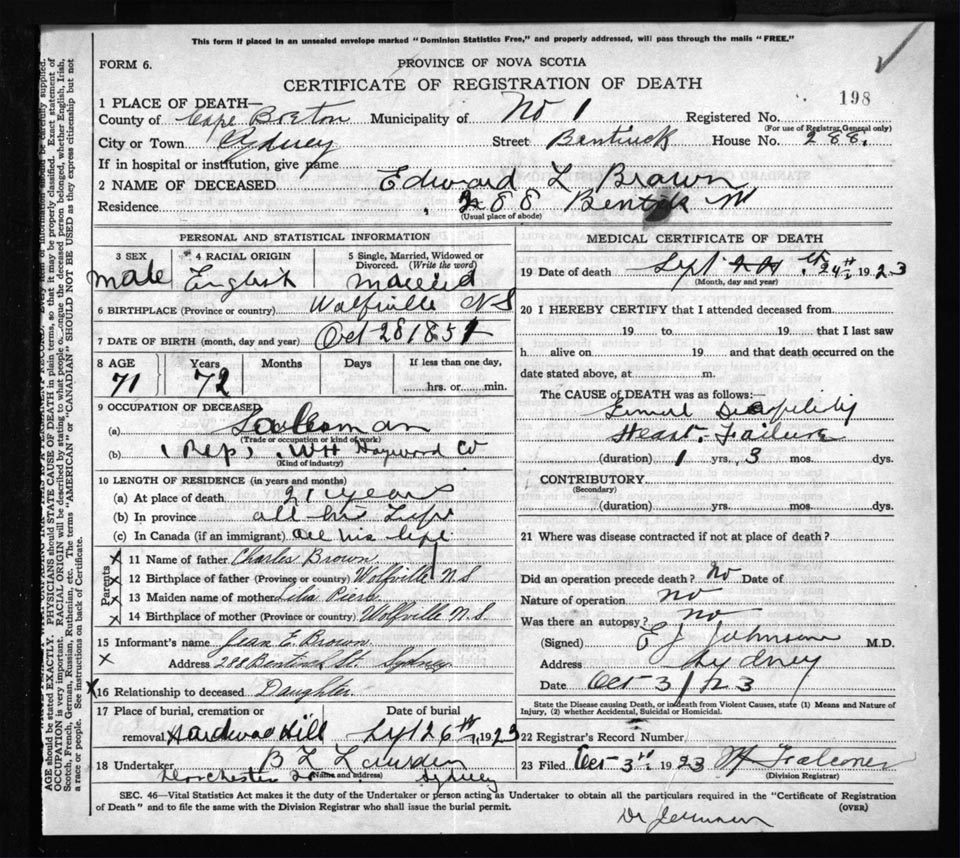 This form if placed in an unsealed envelope marked "Dominion Statistics Free," and properly addressed, will pass through the mails "FREE."
FORM 6.
PROVINCE OF NOVA SCOTIA
CERTIFICATE OF REGISTRATION OF DEATH
198
1 PLACE OF DEATH—
County of Cape Breton Municipality of No 1 Registered No.
(For use of Registrar General only)
City or Town Sydney Street Bentinck House No. 288.
If in hospital or institution, give name
2 NAME OF DECEASED Edward L Brown
Residence 288 Bentick St
(Usual place of abode)
PERSONAL AND STATISTICAL INFORMATION
3 SEX 4 RACIAL ORIGIN 5 Single, Married, Widowed or Divorced. (Write the word)
Male English Married
6 BIRTHPLACE (Province or country) Wolfville N S
7 DATE OF BIRTH (month, day and year) Oct 28 1851
8 AGE Years Months Days If less than one day,
71 72 hrs. or min.
9 OCCUPATION OF DECEASED
(a) Salesman
(Trade or occupation or kind of work)
(b) (Rep) WH Hayward Co
(Kind of industry)
10 LENGTH OF RESIDENCE (in years and months)
(a) At place of death 21 years
(b) In province all his Life
(c) In Canada (if an immigrant) all his life
Parents
11 Name of father Charles Brown
12 Birthplace of father (Province or country) Wolfville N.S
13 Maiden name of mother
14 Birthplace of mother (Province or country) Wolfville N.S.
15 Informant's name Jean E. Brown
Address 288 Bentinck St. Sydney
16 Relationship to deceased Daughter
17 Place of burial, cremation or Date of burial
removal Hardwood Hill Sept 26th, 1923
18 Undertaker
Dorchester St (Name and address) Sydney
MEDICAL CERTIFICATE OF DEATH
19 Date of death Sept 24th 1923
(Month, day and year)
20 I HEREBY CERTIFY that I attended deceased from
19 to 19 that I last saw
h alive on 19 and that death occurred on the
date stated above, at m.
The CAUSE of DEATH was as follows:—
Heart Failure
(duration) 1 yrs. 3 mos. dys.
CONTRIBUTORY
(Secondary)
(duration) yrs. mos. dys.
21 Where was disease contracted if not at place of death?
Did an operation precede death? No Date of
Nature of operation No
Was there an autopsy? No
(Signed) E J Johnson M.D.
Address Sydney
Date Oct 3/23
State the Disease causing Death, or in death from Violent Causes, state (1) Means and Nature of
Injury, (2) whether Accidental, Suicidal or Homicidal.
22 Registrar's Record Number
23 Filed Oct 3rd 1923 Falconer
(Division Registrar)
SEC. 46—Vital Statistics Act makes it the duty of the Undertaker or person acting as Undertaker to obtain all the particulars required in the "Certificate of Registration
of Death" and to file the same with the Division Registrar who shall issue the burial permit.
(OVER)
Dr Johnson
AGE should be stated EXACTLY. PHYSICIANS should STATE CAUSE OF DEATH in plain terms, so that it may be properly classified. Exact statement of
OCCUPATION is very important. RACIAL ORIGIN will be described by stating to what people the deceased person belonged, whether English, Irish,
Scotch, French, German, Russian, Ruthenian, etc. The terms "AMERICAN" or "CANADIAN" SHOULD NOT BE USED as they express citizenship but not
a race or people. See instructions on back of Certificate.